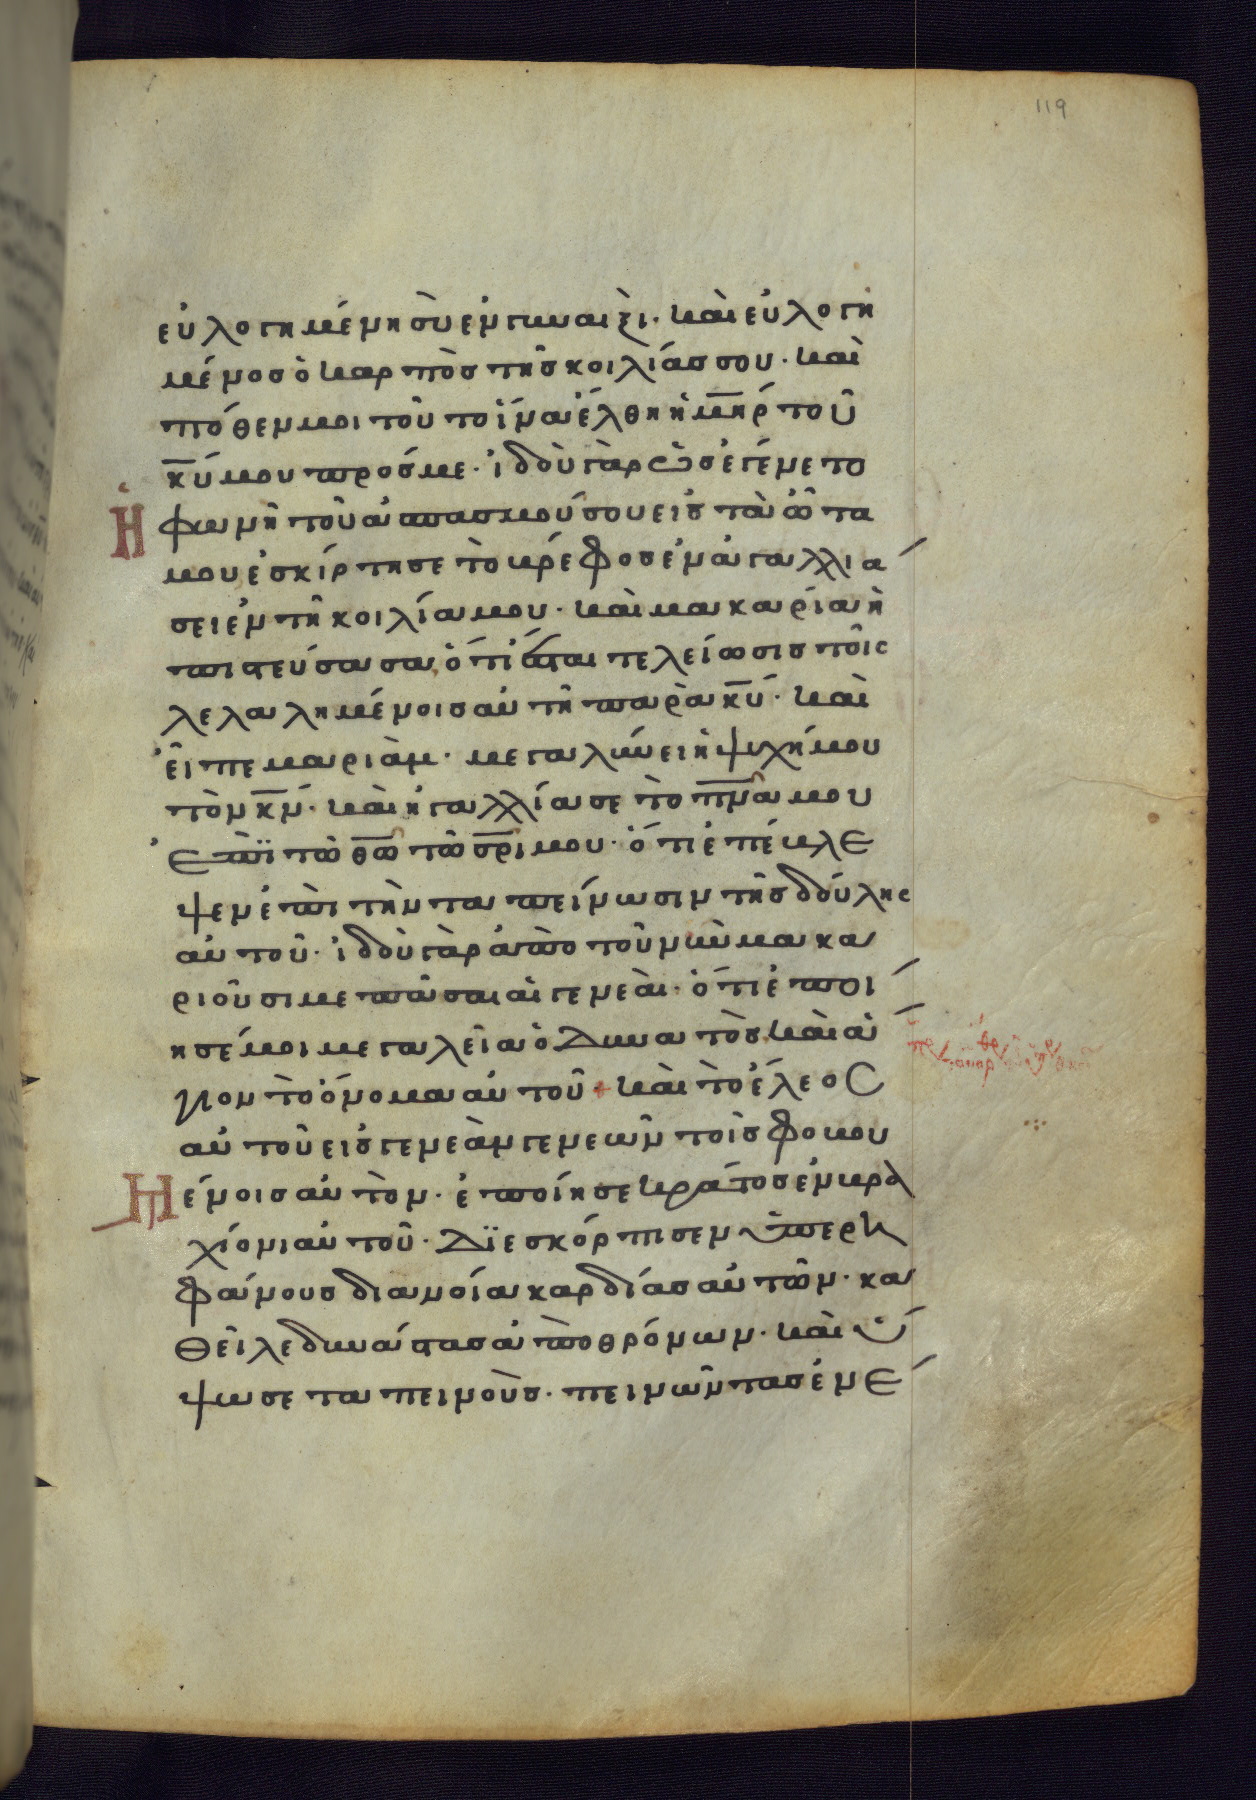 119
εὐλογημένη σὺ ἐν γυναιξὶ· καὶ εὐλογη
μένος ὁ καρπὸς τῆς κοιλίας σου· καὶ
πόθεν μοι τοῦτο ἵνα ἔλθη ἡ μηρ τοῦ
κυ μου πρός με· ἰδοὺ γὰρ ὡς ἐγένετο
Ἡ φωνὴ τοῦ ἀσπασμοῦ σου εἰς τὰ ὦτα
μου ἐσκίρτησε τὸ βρέφος ἐν ἀγαλλιά
σει ἐν τῆ κοιλία μου· καὶ μακαρία ἡ
πιστεύσασα, ὅτι ἔσται τελείωσις τοῖς
λελαλημένοις αὐτῆ παρὰ κυ· καὶ
εἶπε μαριὰμ· μεγαλύνει ἡ ψυχή μου
τὸν κν· καὶ ἠγαλλίασε τὸ πνα μου
ἐπὶ τῶ θω τῶ σρι μου· ὅτι ἐπέβλε
ψεν ἐπὶ τὴν ταπείνωσιν τῆς δούλης
αὐτοῦ· ἰδοὺ γὰρ ἀπὸ τοῦ νῦν μακα
ριοῦσι με πᾶσαι αἱ γενεαὶ· ὅτι ἐποί
ησέ μοι μεγαλεῖα ὁ δυνατὸς καὶ ἅ
γιον τὸ ὄνομα αὐτοῦ + καὶ τὸ ἔλεος
αὐτοῦ εἰς γενεὰν γενεῶν τοῖς φοβου
μένοις αὐτὸν· ἐποίησε κράτος ἐν βρα
χίονι αὐτοῦ· διεσκόρπισεν ὑπερη
φάνους διανοία καρδίας αὐτῶν· κα
θεῖλε δυνάστας ἀπὸ θρόνων· καὶ ὕ
ψωσε ταπεινοὺς· πεινῶντας ἐνέ